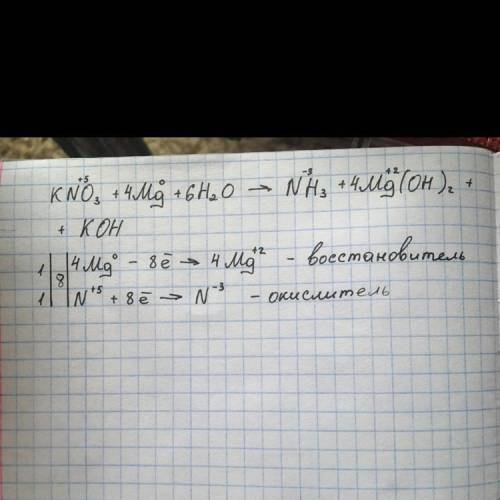 KN⁺⁵O₃ + 4Mg⁰ + 6H₂O → N⁻³H₃ + 4Mg⁺²(OH)₂ +
+ KOH
1 | 8 | 4Mg⁰ - 8ē → 4Mg⁺² - восстановитель
1 | N⁺⁵ + 8ē → N⁻³ - окислитель